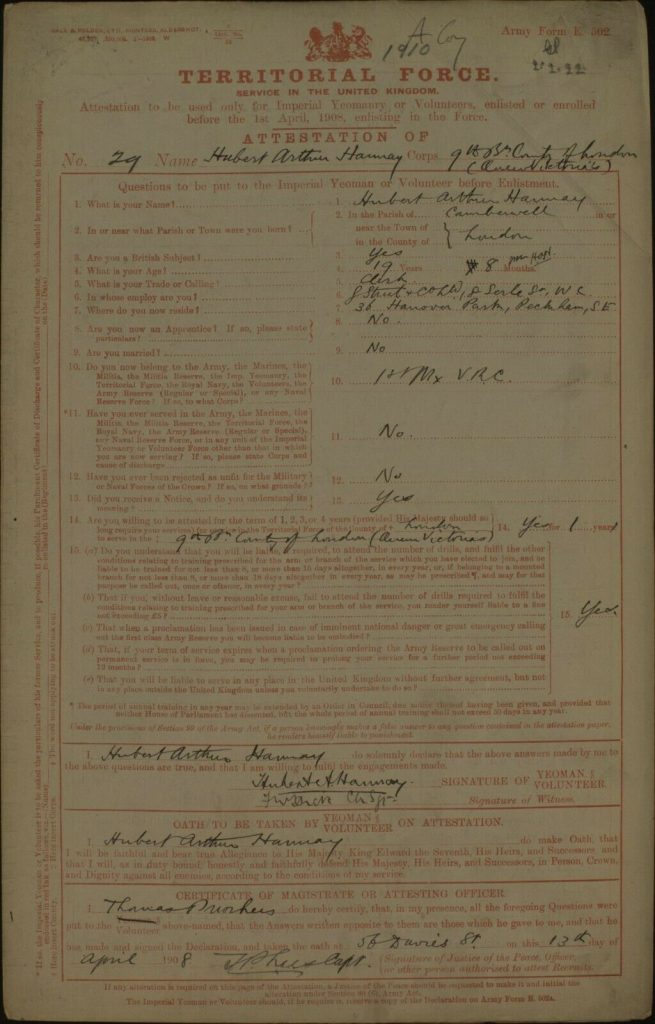 GALE & POLDEN, LTD., PRINTERS, ALDERSHOT.
Army Form E. 502.
A Coy
1910
TERRITORIAL FORCE.
SERVICE IN THE UNITED KINGDOM.
Attestation to be used only for Imperial Yeomanry or Volunteers, enlisted or enrolled
before the 1st April, 1908, enlisting in the Force.
ATTESTATION OF
No. 29 Name Hubert Arthur Hannay Corps 9th Bn County of London
(Queen Victoria's)
Questions to be put to the Imperial Yeoman or Volunteer before Enlistment.
1. What is your Name? 1. Hubert Arthur Hannay
2. In or near what Parish or Town were you born? 2. In the Parish of Camberwell in or
near the Town of
in the County of } London
3. Are you a British Subject? 3. Yes
4. What is your Age? 4. 19 Years 8 Months.
5. What is your Trade or Calling? 5. Clerk
6. In whose employ are you? W.C.
7. Where do you now reside? 7. 36 Hanover Park, Peckham, S.E
8. Are you now an Apprentice? If so, please state particulars? 8. No.
9. Are you married? 9. No
10. Do you now belong to the Army, the Marines, the
Militia, the Militia Reserve, the Imp. Yeomanry, the
Territorial Force, the Royal Navy, the Volunteers, the
Army Reserve (Regular or Special), or any Naval
Reserve Force? If so, to what Corps? 10. 1st Mx V.R.C.
*11. Have you ever served in the Army, the Marines, the
Militia, the Militia Reserve, the Territorial Force, the
Royal Navy, the Army Reserve (Regular or Special),
any Naval Reserve Force, or in any unit of the Imperial
Yeomanry or Volunteer Force other than that in which
you are now serving? If so, please state Corps and
cause of discharge 11. No.
12. Have you ever been rejected as unfit for the Military
or Naval Forces of the Crown? If so, on what grounds? 12. No
13. Did you receive a Notice, and do you understand its
meaning? 13. Yes
14. Are you willing to be attested for the term of 1, 2, 3, or 4 years (provided His Majesty should so
long require your services) for service in the Territorial Force of the County of London 14. Yes for 1 years
to serve in the 9th Bn County of London (Queen Victorias)
15. (a) Do you understand that you will be liable, if required, to attend the number of drills, and fulfil the other
conditions relating to training prescribed for the arm or branch of the service which you have elected to join, and be
liable to be trained for not less than 8, or more than 15 days altogether, in every year, or, if belonging to a mounted
branch for not less than 8, or more than 18 days altogether in every year, as may be prescribed¶, and may for that
purpose be called out, once or oftener, in every year?
(b) That if you, without leave or reasonable excuse, fail to attend the number of drills required to fulfil the
conditions relating to training prescribed for your arm or branch of the service, you render yourself liable to a fine
not exceeding £5? 15. Yes.
(c) That when a proclamation has been issued in case of imminent national danger or great emergency calling
out the first class Army Reserve you will become liable to be embodied?
(d) That, if your term of service expires when a proclamation ordering the Army Reserve to be called out on
permanent service is in force, you may be required to prolong your service for a further period not exceeding
12 months?
(e) That you will be liable to serve in any place in the United Kingdom without further agreement, but not
in any place outside the United Kingdom unless you voluntarily undertake to do so?
¶ The period of annual training in any year may be extended by an Order in Council, due notice thereof having been given, and provided that
neither House of Parliament has dissented, but the whole period of annual training shall not exceed 30 days in any year.
Under the provisions of Section 99 of the Army Act, if a person knowingly makes a false answer to any question contained in the attestation paper,
he renders himself liable to punishment.
I, Hubert Arthur Hannay do solemnly declare that the above answers made by me to
the above questions are true, and that I am willing to fulfil the engagements made.
Hubert A Hannay SIGNATURE OF YEOMAN. VOLUNTEER.
Signature of Witness.
OATH TO BE TAKEN BY YEOMAN VOLUNTEER ON ATTESTATION.
I Hubert Arthur Hannay do make Oath, that
I will be faithful and bear true Allegiance to His Majesty King Edward the Seventh, His Heirs, and Successors, and
that I will, as in duty bound, honestly and faithfully defend His Majesty, His Heirs, and Successors, in Person, Crown,
and Dignity against all enemies, according to the conditions of my service.
CERTIFICATE OF MAGISTRATE OR ATTESTING OFFICER.
I Thomas do hereby certify, that, in my presence, all the foregoing Questions were
put to the Volunteer above-named, that the Answers written opposite to them are those which he gave to me, and that he
has made and signed the Declaration, and taken the oath at 56 Davies St. on this 13th day of
April 1908 Capt. (Signature of Justice of the Peace, Officer,
or other person authorised to attest Recruits.
If any alteration is required on this page of the Attestation, a Justice of the Peace should be requested to make it and initial the
alteration under Section 80 (6), Army Act.
The Imperial Yeoman or Volunteer should, if he require it, receive a copy of the Declaration on Army Form E. 502a.